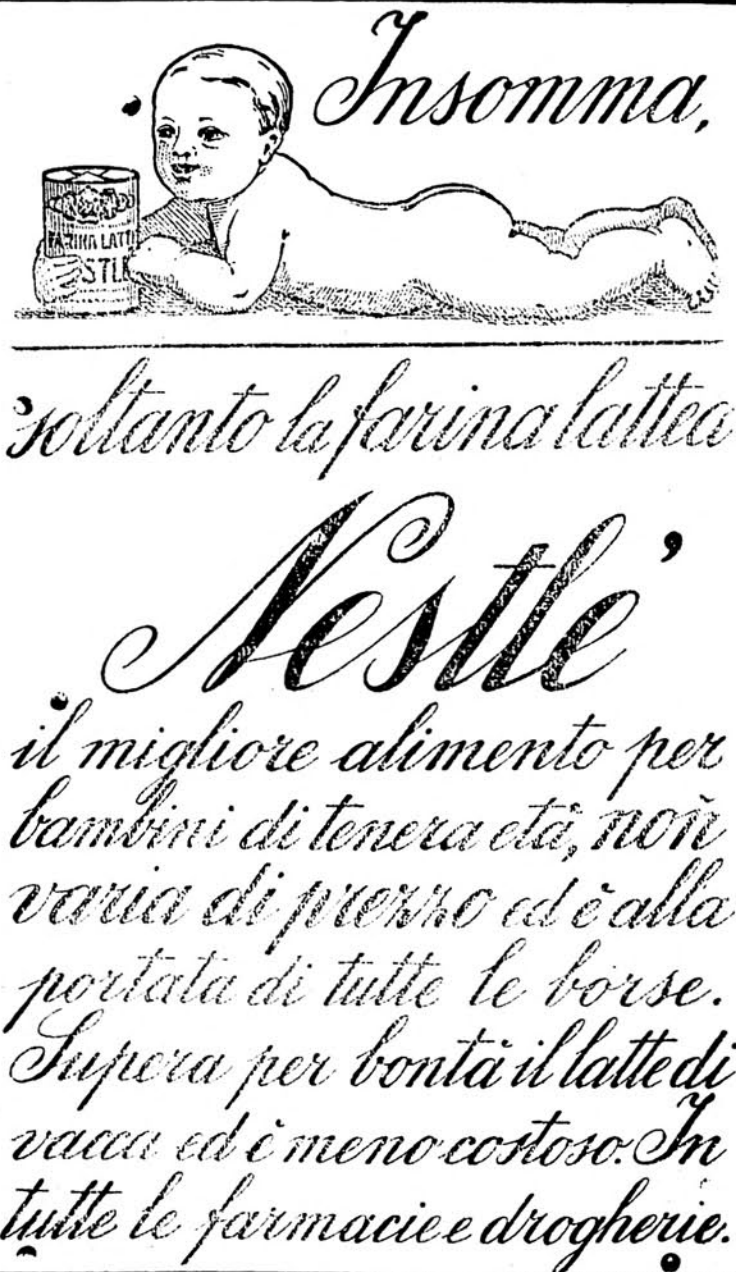 Insomma,
FARINA LATT
STLE
soltanto la farina lattea
Nestlé
il migliore alimento per
bambini di tenera età, non
varia di prezzo ed è alla
portata di tutte le borse.
Supera per bontà il latte di
vacca ed è meno costoso. In
tutte le farmacie e drogherie.